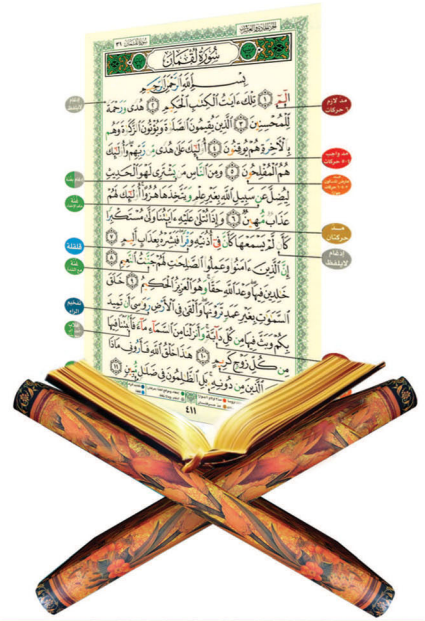 سُورَةُ لُقْمَان
بِسْمِ اللَّهِ الرَّحْمَٰنِ الرَّحِيمِ
الٓمٓ ١ تِلْكَ ءَايَٰتُ الْكِتَٰبِ الْحَكِيمِ ٢ هُدًى وَرَحْمَةً
لِّلْمُحْسِنِينَ ٣ الَّذِينَ يُقِيمُونَ الصَّلَوٰةَ وَيُؤْتُونَ الزَّكَوٰةَ وَهُم
بِالْأٓخِرَةِ هُمْ يُوقِنُونَ ٤ أُولَٰٓئِكَ عَلَىٰ هُدًى مِّن رَّبِّهِمْ وَأُولَٰٓئِكَ
هُمُ الْمُفْلِحُونَ ٥ وَمِنَ النَّاسِ مَن يَشْتَرِى لَهْوَ الْحَدِيثِ
لِيُضِلَّ عَن سَبِيلِ اللَّهِ بِغَيْرِ عِلْمٍ وَيَتَّخِذَهَا هُزُوًا أُولَٰٓئِكَ لَهُمْ
عَذَابٌ مُّهِينٌ ٦ وَإِذَا تُتْلَىٰ عَلَيْهِ ءَايَٰتُنَا وَلَّىٰ مُسْتَكْبِرًا
كَأَن لَّمْ يَسْمَعْهَا كَأَنَّ فِىٓ أُذُنَيْهِ وَقْرًا فَبَشِّرْهُ بِعَذَابٍ أَلِيمٍ ٧
إِنَّ الَّذِينَ ءَامَنُوا وَعَمِلُوا الصَّٰلِحَٰتِ لَهُمْ جَنَّٰتُ النَّعِيمِ ٨
خَٰلِدِينَ فِيهَا وَعْدَ اللَّهِ حَقًّا وَهُوَ الْعَزِيزُ الْحَكِيمُ ٩ خَلَقَ
السَّمَٰوَٰتِ بِغَيْرِ عَمَدٍ تَرَوْنَهَا وَأَلْقَىٰ فِى الْأَرْضِ رَوَٰسِىَ أَن تَمِيدَ
بِكُمْ وَبَثَّ فِيهَا مِن كُلِّ دَآبَّةٍ وَأَنزَلْنَا مِنَ السَّمَآءِ مَآءً فَأَنبَتْنَا فِيهَا
مِن كُلِّ زَوْجٍ كَرِيمٍ ١٠ هَٰذَا خَلْقُ اللَّهِ فَأَرُونِى مَاذَا
الَّذِينَ مِن دُونِهِ بَلِ الظَّٰلِمُونَ فِى ضَلَٰلٍ مُّبِينٍ ١١
٤١١
مد لازم
٦ حركات
مد واجب
مد
حركتان
إدغام
لايلفظ
غنة
قلقلة
غنة
تفخيم
الراء